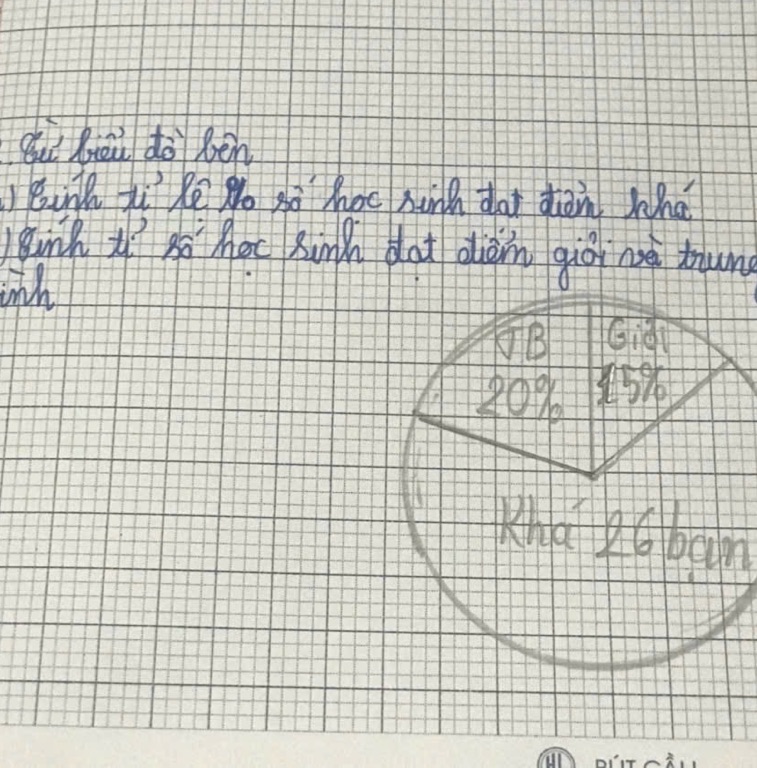 Từ biểu đồ bên
) Tính tỉ lệ % số học sinh đạt điểm khá
) Tính tỉ số học sinh đạt điểm giỏi và trung
ình
TB
20%
Giỏi
15%
Khá 26 bạn
HL